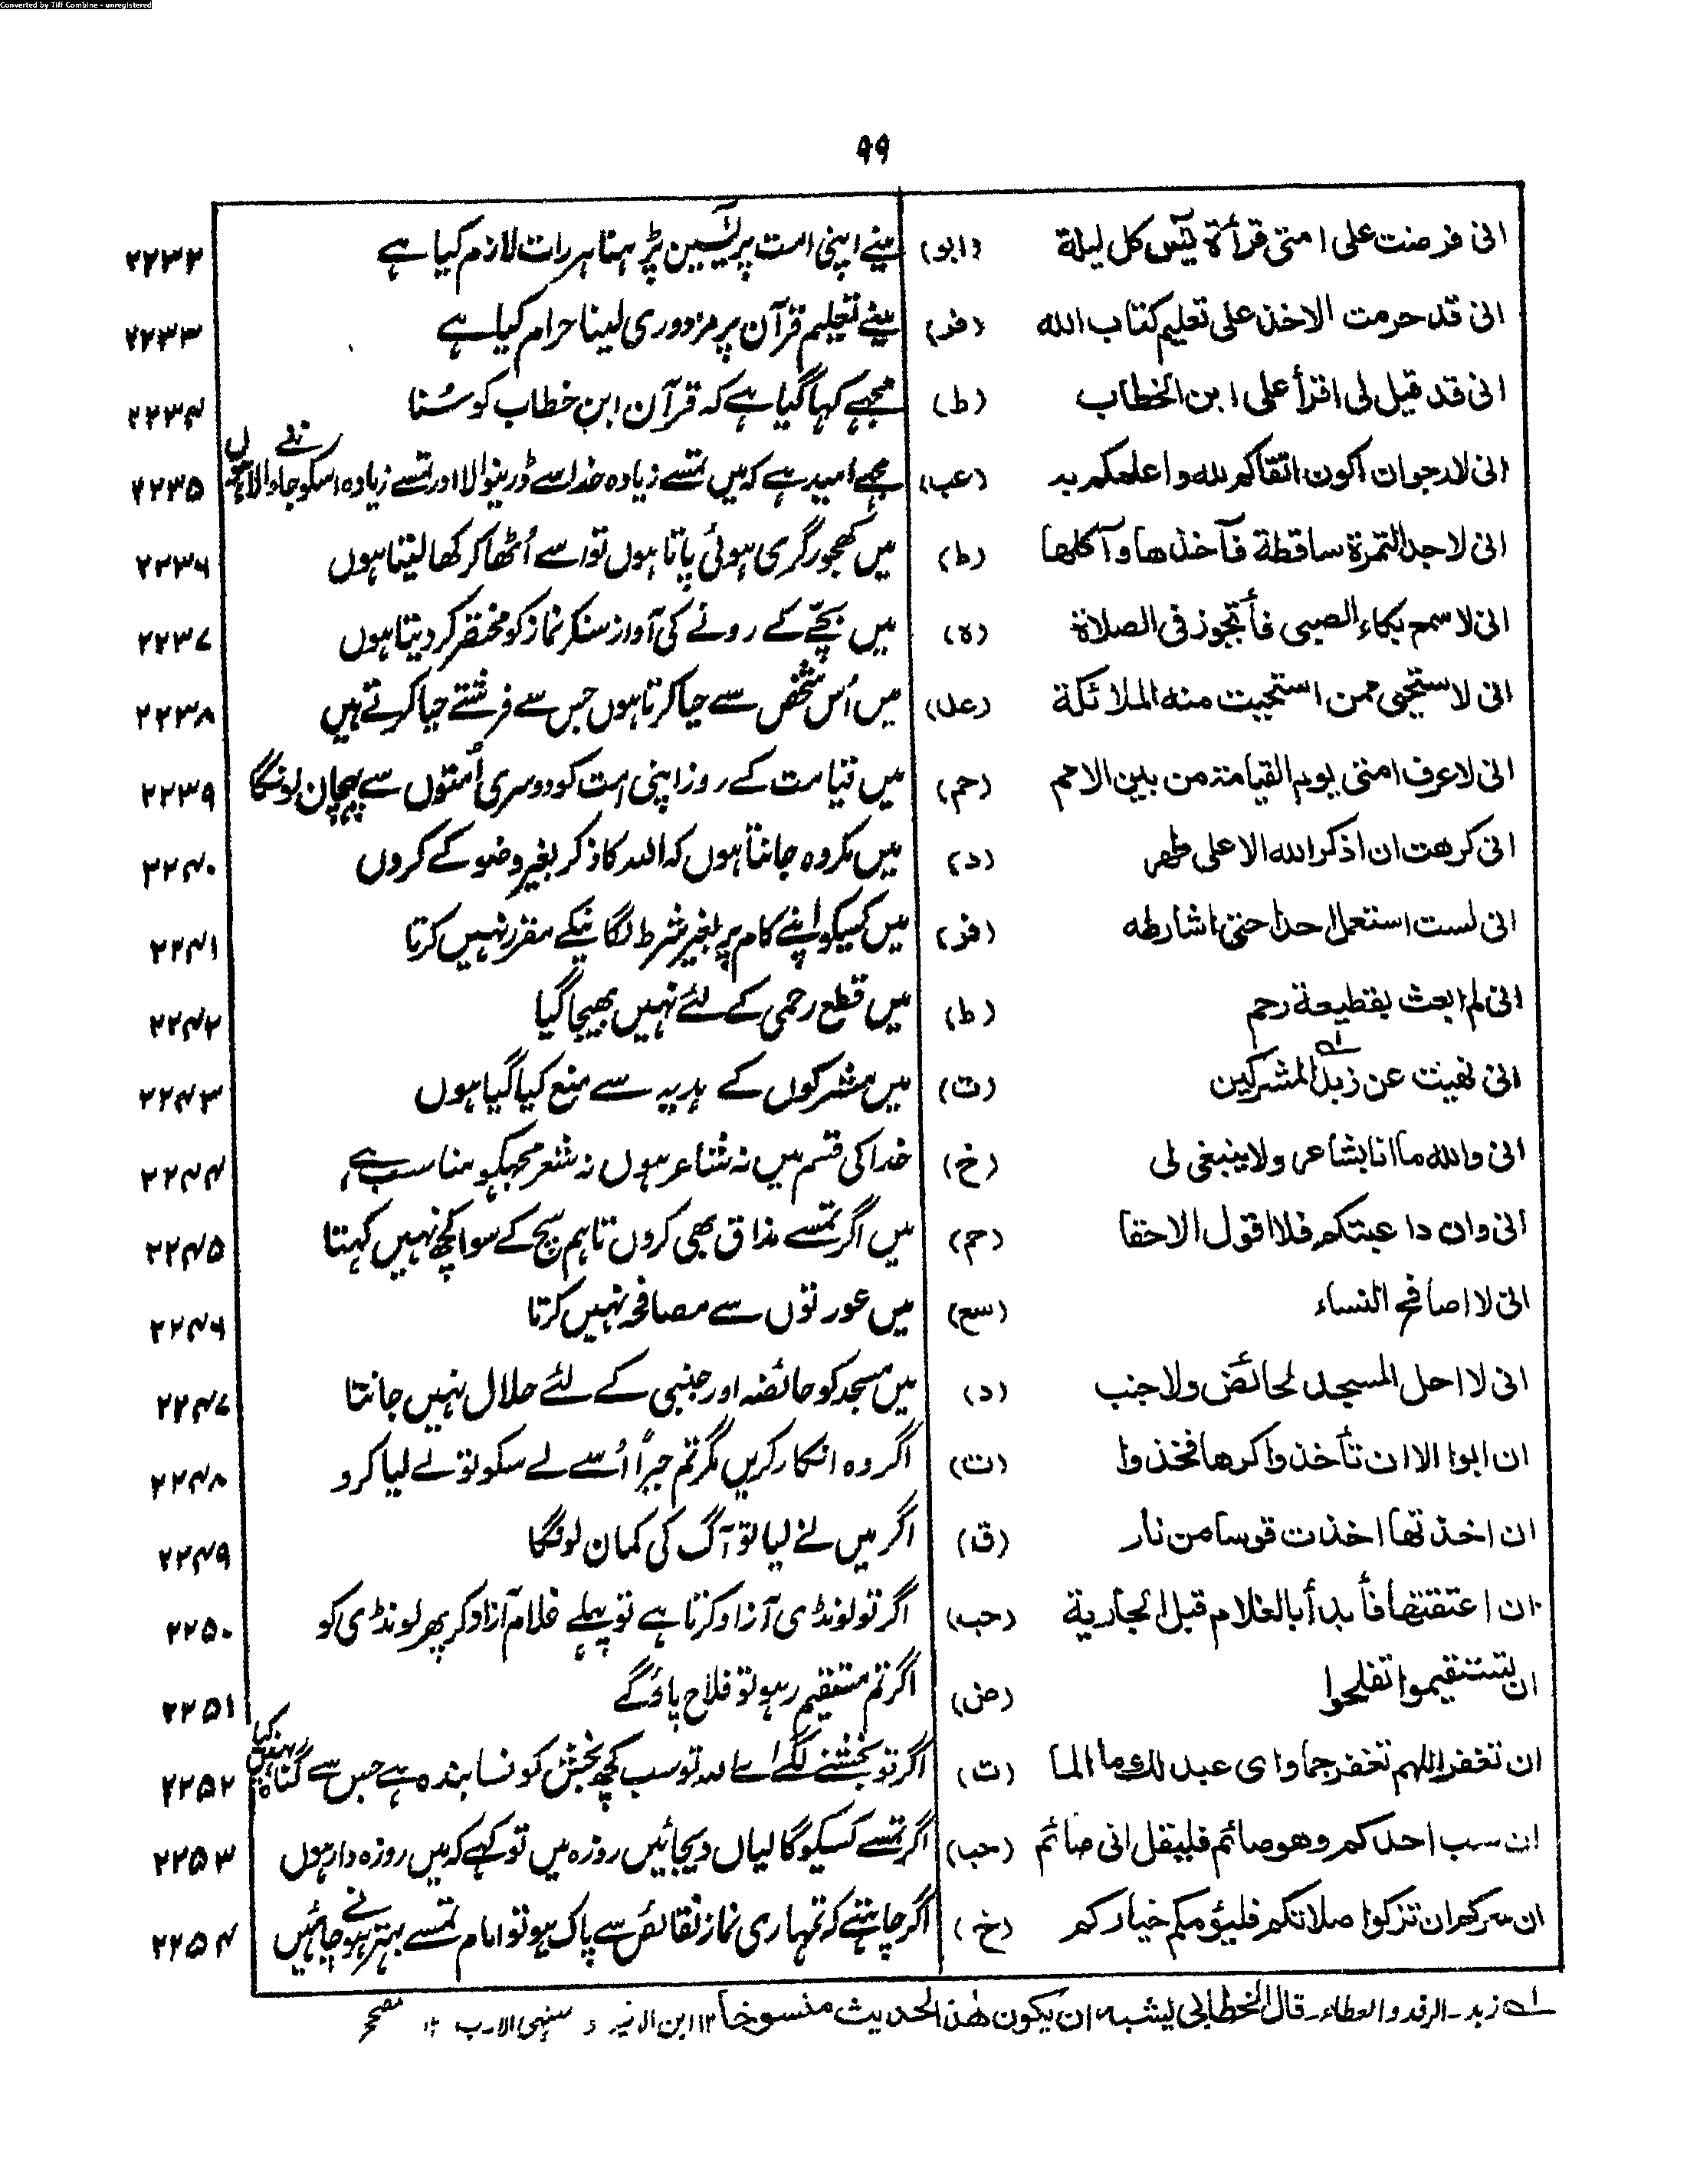 Converted by Tiff Combine - unregistered
۹۹
انی فرضت علی امتی قرأۃ یٰس کل لیلۃ (ابو) مینے اپنی امت پر یٰسین پڑہنا ہر رات لازم کیا ہے ۲۲۳۲
انی قد حرمت الاخذ علی تعلیم کتاب اللہ (فر) مینے تعلیم قرآن پر مزدوری لینا حرام کیا ہے ۲۲۳۳
انی قد قیل لی اقرأ علی ابن الخطاب (ط) مجھے کہا گیا ہے کہ قرآن ابن خطاب کو سُنا ۲۲۳۴
انی لارجو ان اکون اتقاکم للہ واعلمکم بہ (عب) مجھے امید ہے کہ میں تمسے زیادہ خدا سے ڈرنیوالا اور تمسے زیادہ اسکو جاننے والا ۲۲۳۵
انی لاجد التمرۃ ساقطۃ فآخذھا وآکلھا (ط) میں کھجور گری ہوئی پاتا ہوں تو اسے اُٹھا کر کھا لیتا ہوں ۲۲۳۶
انی لاسمع بکاء الصبی فأتجوز فی الصلاۃ (ہ) میں بچّے کے رونے کی آواز سنکر نماز کو مختصر کر دیتا ہوں ۲۲۳۷
انی لاستحیی ممن استحییت منہ الملائکۃ (عد) میں اُس شخص سے حیا کرتا ہوں جس سے فرشتے حیا کرتے ہیں ۲۲۳۸
انی لاعرف امتی یوم القیامۃ من بین الامم (حم) میں قیامت کے روز اپنی امت کو دوسری اُمتوں سے پہچان لونگا ۲۲۳۹
انی کرھت ان اذکر اللہ الا علی طھر (د) میں مکروہ جانتا ہوں کہ اللہ کا ذکر بغیر وضو کے کروں ۲۲۴۰
انی لست استعمل احدا حتی اشارطہ (فر) میں کسیکو اپنے کام پر بغیر شرط لگانیکے مقرر نہیں کرتا ۲۲۴۱
انی لم ابعث بقطیعۃ رحم (ط) میں قطع رحمی کے لئے نہیں بھیجا گیا ۲۲۴۲
انی نھیت عن زبد المشرکین (ت) میں مشرکوں کے ہدیہ سے منع کیا گیا ہوں ۲۲۴۳
انی واللہ ما انا بشاعر ولا ینبغی لی (خ) خدا کی قسم میں نہ شاعر ہوں نہ شعر مجھکو مناسب ہے ۲۲۴۴
انی وان داعبتکم فلا اقول الاحقا (حم) میں اگر تمسے مذاق بھی کروں تاہم سچ کے سوا کچھ نہیں کہتا ۲۲۴۵
انی لا اصافح النساء (سع) میں عورتوں سے مصافحہ نہیں کرتا ۲۲۴۶
انی لا احل المسجد لحائض ولا جنب (د) میں مسجد کو حائضہ اور جنبی کے لئے حلال نہیں جانتا ۲۲۴۷
ان ابوا الا ان تأخذوا کرھا فخذوا (ت) اگر وہ انکار کریں مگر تم جبراً اُسے لے سکو تو لے لیا کرو ۲۲۴۸
ان اخذتھا اخذت قوسا من نار (ق) اگر میں نے لیا تو آگ کی کمان لونگا ۲۲۴۹
ان اعتقتھا فأبدأ بالغلام قبل الجاریۃ (حب) اگر تو لونڈی آزاد کرتا ہے تو پہلے غلام آزاد کر پھر لونڈی کو ۲۲۵۰
ان تستقیموا تفلحوا (ض) اگر تم مستقیم رہو تو فلاح پاؤگے ۲۲۵۱
ان تغفر اللہم تغفر جما وای عبد لک ما الما (ت) اگر تو بخشنے لگے اے اللہ تو سب کچھ بخش کونسا بندہ ہے جس سے گناہ نہیں کیا ۲۲۵۲
ان سب احدکم وھو صائم فلیقل انی صائم (حب) اگر تمسے کسیکو گالیاں دیجائیں روزہ میں تو کہے کہ میں روزہ دار ہوں ۲۲۵۳
ان سرکم ان تزکوا صلاتکم فلیؤمکم خیارکم (خ) اگر چاہتے کہ تمہاری نماز نقائص سے پاک ہو تو امام تمسے بہتر ہونے چاہئیں ۲۲۵۴
لہ زبد۔ الرفد والعطاء۔ قال الخطابی یشبہ ان یکون ھذا الحدیث منسوخا ۱۲ ابن الاثیر و منتہی الارب ۱۲ مصحح